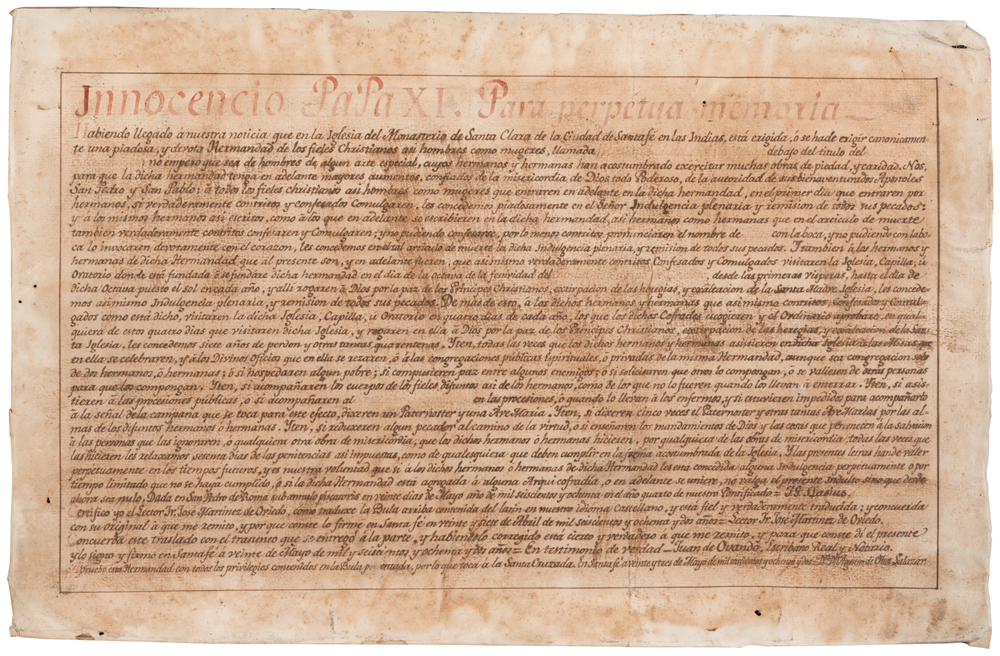 Innocencio PaPa XI. Para perpetua memoria
Habiendo llegado à nuestra noticia que en la Iglesia del Monasterio de Santa Clara de la Ciudad de Santafé en las Indias, está erigida, ò se ha de erigir canonicamen-
te una piadosa, y devota Hermandad de los fieles Christianos asi hombres como mugeres, llamada debajo del titulo del
no empero que sea de hombres de algun arte especial, cuyos hermanos y hermanas han acostumbrado exercitar muchas obras de piedad, y caridad. Nos,
para que la dicha hermandad tenga en adelante mayores aumentos, confiados de la misericordia de Dios todo Poderoso, de la autoridad de sus bienaventurados Apostoles
San Pedro y San Pablo; à todos los fieles christianos asi hombres como mugeres que entraren en adelante en la dicha hermandad, en el primer dia que entraren por
hermanos, si verdaderamente contritos y confesados Comulgaren, les concedemos piadosamente en el Señor Indulgencia plenaria y remision de todos sus pecados:
y à los mismos hermanos asi escritos, como à los que en adelante se escribieren en la dicha hermandad, asi hermanos como hermanas que en el articulo de muerte
tambien verdaderamente contritos confesaren y Comulgaren; y no pudiendo confesarse, por lo menos contritos pronunciaren el nombre de con la boca, y no pudiendo con la bo-
ca lo invocaren devotamente con el corazon, les concedemos en el tal articulo de muerte la dicha Indulgencia plenaria, y remision de todos sus pecados. Y tambien à los hermanos y
hermanas de dicha Hermandad que al presente son, y en adelante fueren, que asi mismo verdaderamente contritos Confesados y Comulgados visitaren la Iglesia, Capilla, ù
Oratorio donde está fundada ò se fundare dicha hermandad en el dia de la octava de la festividad del desde las primeras visperas, hasta el dia de
dicha Octava puesto el sol en cada año, y alli rogaren à Dios por la paz de los Principes Christianos, extirpacion de las heregias, y exaltacion de la Santa Madre Iglesia, les concede-
mos asi mismo Indulgencia plenaria, y remision de todos sus pecados. De mas de esto, à los dichos hermanos y hermanas que asi mismo contritos, Confesados y Comul-
gados como está dicho, visitaren la dicha Iglesia, Capilla, ù Oratorio en quatro dias de cada año, los que los dichos Cofrades escogieren y el Ordinario aprobare, en qual-
quiera de estos quatro dias que visitaren dicha Iglesia, y rogaren en ella à Dios por la paz de los Principes Christianos, extirpacion de las heregias, y exaltacion de la San-
ta Iglesia, les concedemos siete años de perdon y otras tantas quarentenas. Yten, todas las veces que los dichos hermanos y hermanas asistieren en dicha Iglesia à las Misas que
en ella se celebraren, y à los Divinos Oficios que en ella se rezaren, ò à las congregaciones publicas espirituales, ò privadas de la misma Hermandad, aunque sea congregacion solo
de dos hermanos, ò hermanas; ò si hospedaren algun pobre; si compusieren paz entre algunos enemigos; ò si solicitaren que otros lo compongan, ò se valieren de otras personas
para que los compongan. Yten, si acompañaren los cuerpos de los fieles difuntos asi de los hermanos, como de los que no lo fueren quando los llevan à enterrar. Yten, si asis-
tieren à las procesiones publicas, ò si acompañaren al en las procesiones, ò quando lo llevan à los enfermos, y si estuvieren impedidos para acompañarlo
à la señal de la campana que se toca para este efecto, dixeren un Paternoster y una Ave Maria. Yten, si dixeren cinco veces el Paternoster y otras tantas Ave Marias por las al-
mas de los difuntos hermanos ò hermanas. Yten, si reduxeren algun pecador al camino de la virtud, ò si enseñaren los mandamientos de Dios y las cosas que pertenecen à la salvacion
à las personas que las ignoraren, ò qualquiera otra obra de misericordia, que los dichos hermanos ò hermanas hicieren, por qualquiera de las obras de misericordia, todas las veces que
las hicieren les relaxamos sesenta dias de las penitencias asi impuestas, como de qualesquiera que deben cumplir en la forma acostumbrada de la Iglesia. Y las presentes letras han de valer
perpetuamente en los tiempos futuros, y es nuestra voluntad que si à los dichos hermanos ò hermanas de dicha Hermandad les esta concedida alguna Indulgencia perpetuamente ò por
tiempo limitado que no se haya cumplido, ò si la dicha Hermandad está agregada à alguna Arquicofradia, ò en adelante se uniere, no valga el presente Indulto sino que desde
ahora sea nulo. Dada en San Pedro de Roma sub annulo piscatoris en veinte dias de Mayo año de mil seiscientos y ochenta, en el año quarto de nuestro Pontificado=
Certifico yo el Lector Fr. José Martinez de Oviedo, como traduce la Bula arriba contenida del latin en nuestro idioma Castellano, y está fiel y verdaderamente traducida; y concuerda
con su original à que me remito, y por que conste lo firme en Santa fe en veinte y siete de Abril de mil seiscientos y ochenta y dos años= Lector Fr. José Martinez de Oviedo.
Concuerda este traslado con el transunto que se entregò à la parte, y habiendolo corregido està cierto y verdadero à que me remito, y para que conste di el presente
y lo signo y firmo en Santafé à veinte de Mayo de mil y seiscientos y ochenta y dos años= En testimonio de verdad Juan de Ovando, Escribano Real y Notario.
Apruebo esta Hermandad con todos los privilegios contenidos en la Bula presentada, por lo que toca à la Santa Cruzada. En Santafé à veinte y tres de Mayo de mil seiscientos y ochenta y dos= Salazar.